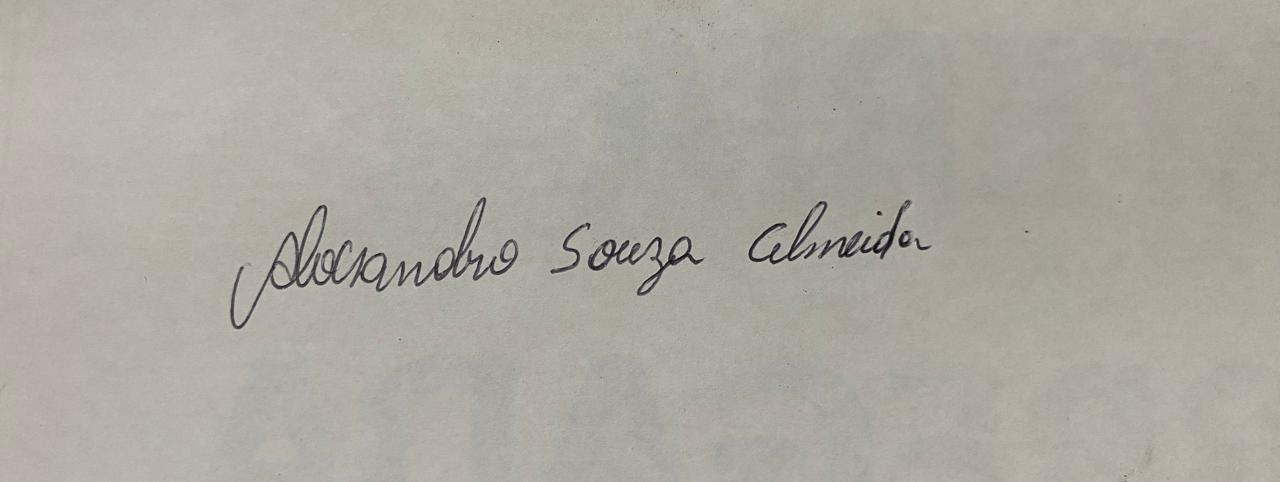 Alexsandro Souza Almeida